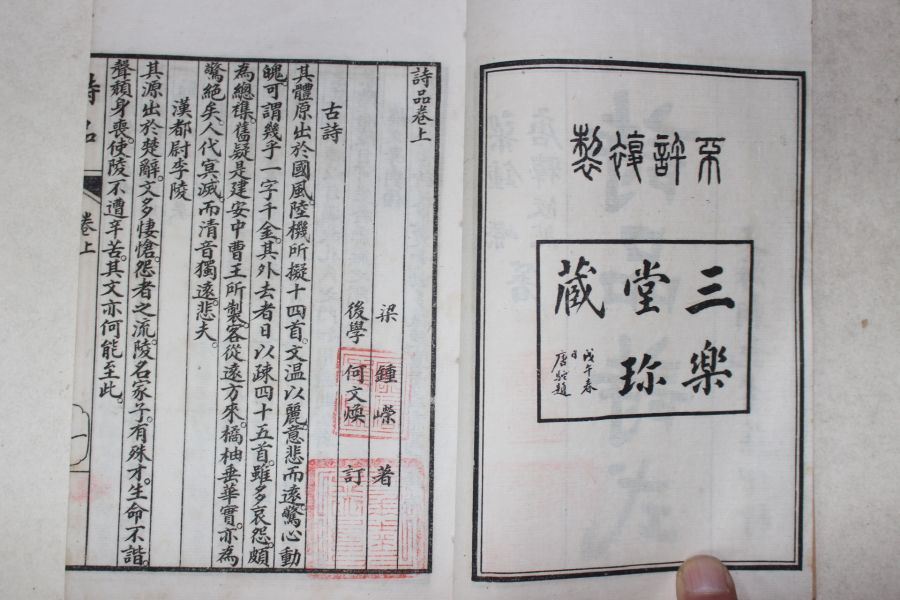 不許複製
三樂
堂珎
藏
戊午春
日
唐駝題
詩品卷上
梁 鍾嶸 著
後學 何文煥 訂
古詩
其體原出於國風。陸機所擬十四首。文溫以麗。意悲而遠。驚心動
魄。可謂幾乎一字千金。其外去者日以疎四十五首。雖多哀怨。頗
為總襍。舊疑是建安中曹王所製。客從遠方來。橘柚垂華實。亦為
驚絕矣。人代冥滅。而清音獨遠。悲夫。
漢都尉李陵
其源出於楚辭。文多悽愴。怨者之流。陵名家子。有殊才。生命不諧。
聲頹身喪。使陵不遭辛苦。其文亦何能至此。
詩品
卷上
一